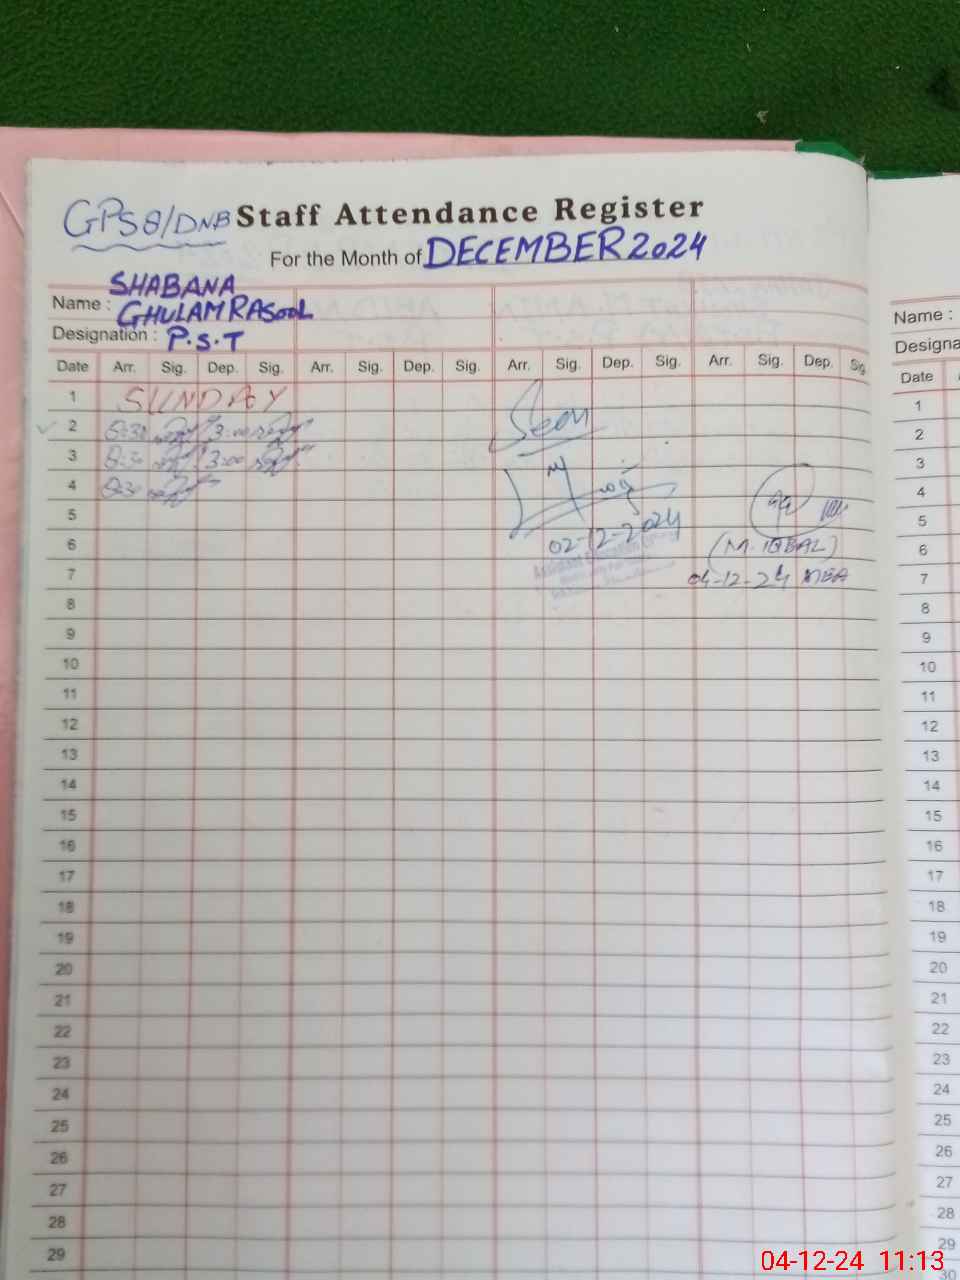 GPS 8/DNB Staff Attendance Register
For the Month of DECEMBER 2024
Name : SHABANA GHULAM RASOOL
Designation : P.S.T
Date Arr. Sig. Dep. Sig. Arr. Sig. Dep. Sig. Arr. Sig. Dep. Sig. Arr. Sig. Dep. Sig.
1 SUNDAY
2 8:30 3:00
3 8:30 3:00
4 8:30
5
02-12-2024
6 (M. IQBAL)
7 04-12-24
8
9
10
11
12
13
14
15
16
17
18
19
20
21
22
23
24
25
26
27
28
29
Name :
Designa
Date
1
2
3
4
5
6
7
8
9
10
11
12
13
14
15
16
17
18
19
20
21
22
23
24
25
26
27
28
29
30
04-12-24 11:13